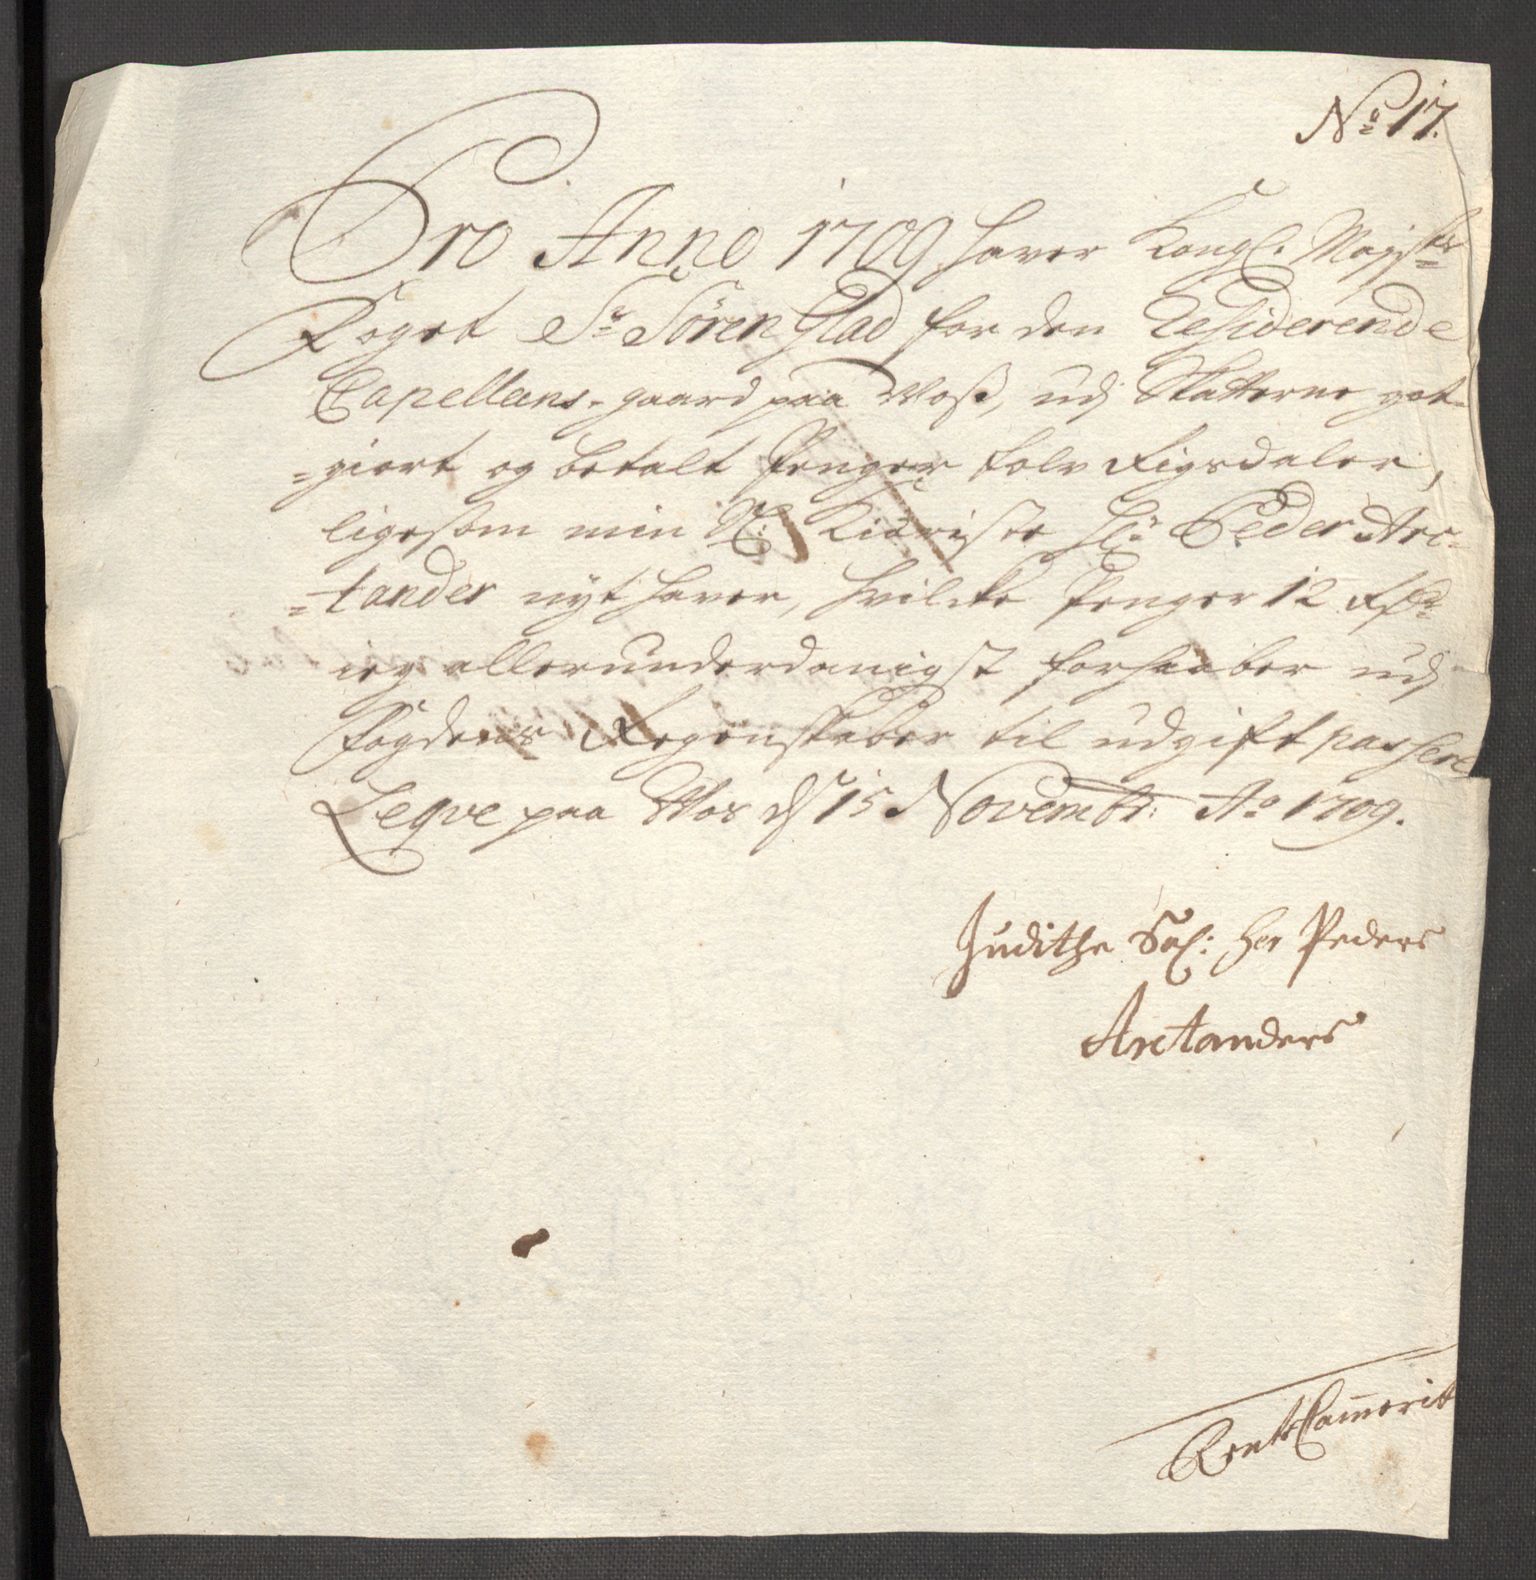 No 17.
Pro Anno 1709 haver Kongl. Mayts
Foget Sr Sören Glad for den Residerende
Capellans-gaard paa Voss, udj Skatterne got-
=giort og betalt Penger tolv Rigsdaler,
ligesom min Sl: Kieriste Hr: Peder Arc-
=tander nyt haver, hvilcke Penger 12 Rdr
ieg allerunderdanigst forhaaber udj
Fogdens Regenskaber til udgift passere
Leqve paa Wos d 15 Novembr: Ao 1709.
Judithe Sal: her Peders
Arctanders
RenteCammerit